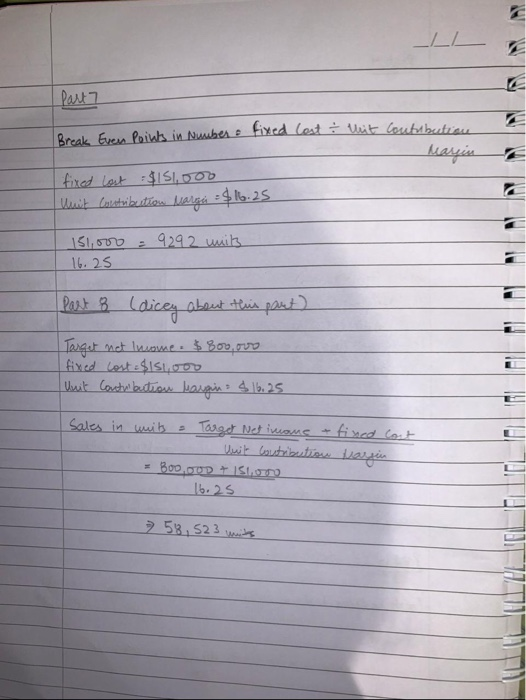 _/_/_
Part 7
Break Even Points in Number = fixed Cost ÷ Unit Contribution
Margin
fixed Cost = $151,000
Unit Contribution Margin = $16.25
151,000 = 9292 units
16.25
Part 8 (dicey about this part)
Target net Income = $800,000
fixed cost = $151,000
Unit Contribution Margin = $16.25
Sales in units = Target Net income + fixed Cost
Unit Contribution Margin
= 800,000 + 151,000
16.25
⇒ 58,523 units